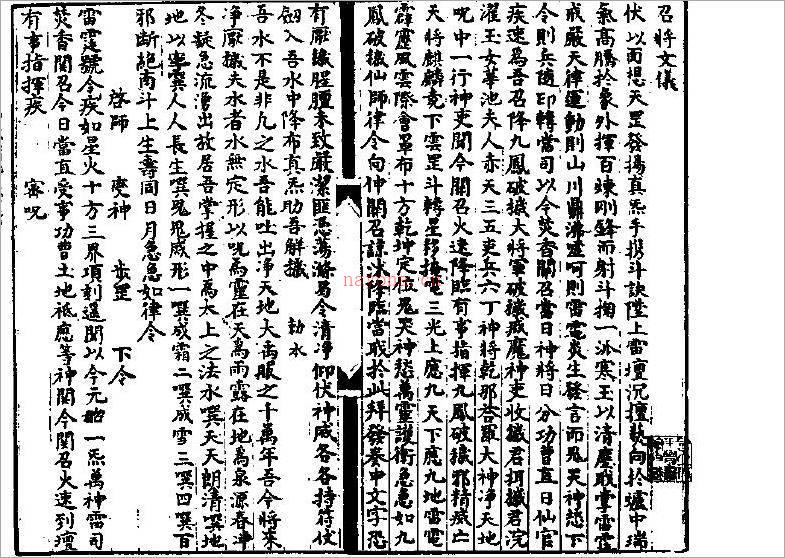 召將文儀
伏以面想天罡發揚真炁手携斗訣陞上雷壇沉擅
氣高騰於象外揮百煉剛鋒而射斗掬一派寒玉以清塵
戒嚴天律運動則山川鼎沸
令則兵隨印轉當司以今焚香關召當日神將日分功曹直日仙官
疾速為吾召降九鳳破穢大將軍破穢
濯玉女華池夫人赤天三五吏兵六丁神將乾邪荅羅大神淨天地
呪中一行神吏聞今關召火速降臨有事指揮九鳳破穢邪精滅亡
天將麒麟竟下雲罡斗轉星移 三光上應九天下應九地雷電
霹靂風雲際會羅布十方乾坤定位鬼哭神愁萬靈護衛急急如九
鳳破穢仙師律令向伸關召 降臨當職於此拜發奏申文字恐
有厭穢腥膻未致嚴潔匪憑蕩滌曷令清淨仰伏神威各各持符仗
劍入吾水中降布真炁助吾解穢 勑水
吾水不是非凡之水吾能吐出淨天地大禹服之千萬年吾今將來
淨厭穢夫水者水無定形以呪為靈在天為雨露在地為泉源春冲
冬凝急流湧出故居吾掌握之中為太上之法水噀天天朗清噀地
地以 噀人人長生噀鬼鬼滅形一噀成霜二噀成雪三噀四噀百
邪斷絕南斗上生壽同日月急急如律令
啓師 步罡 下令
雷霆號令疾如星火十方三界頃刻遥聞以今元 一炁萬神雷司
焚香關召今日當直受事功曹土地祗應等神聞今關召火速到壇
有事指揮疾 密呪